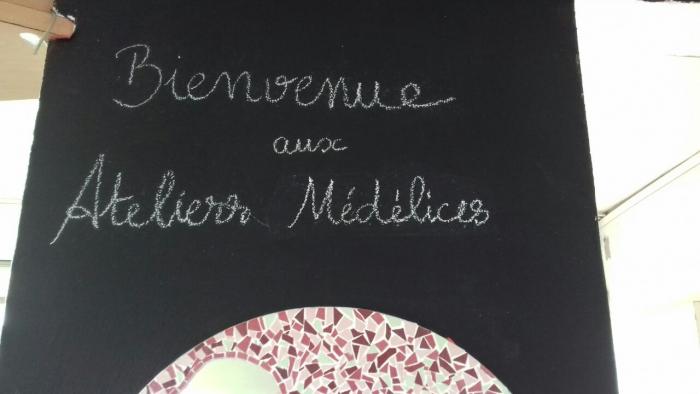 Bienvenue
aux
Ateliers Médélices